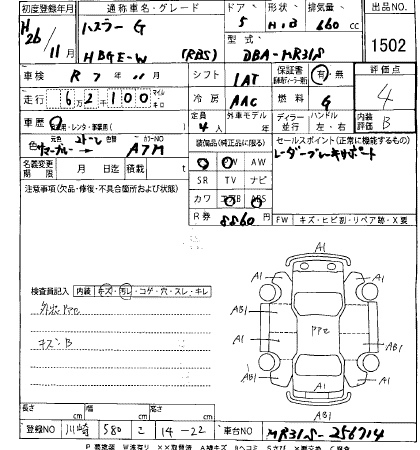 初度登録年月 通称車名・グレード ドア 形状 排気量 出品NO
H26 / 11月 ハスラー G 5 H・B 660 cc 1502
HBGE-W (RBS) 型式 DBA-MR31S
車検 R 7年 11月 シフト 1AT 保証書 有・無 評価点
走行 6 2 1 0 0 マイル キロ 冷房 AAC 燃料 G 4
車歴 自家用・レンタ・事業用( ) 定員 4人 外車モデル ディーラー 並行 ハンドル 左・右 内装評価 B
色 元色 2トーン 色替 カラーNO A7M 装備品(純正品に限る) セールスポイント(正常に機能するもの)
名義変更期限 月 日迄 積載 t AW レーダーブレーキサポート
注意事項(欠品・修復・不具合箇所および状態) SR TV ナビ
カワ ABS
R券 8860円 FW キズ・ヒビ割・リペア跡・X要
検査員記入 内装 キズ・汚レ・コゲ・穴・スレ・キレ
外装PPC
キズB
A1
A1 A1
AB1 PPC A1
A1 AB1
A1 A1
AB1
長さ cm 幅 cm 高さ cm
登録NO 川崎 580 こ 14-22 車台NO MR31S-256714